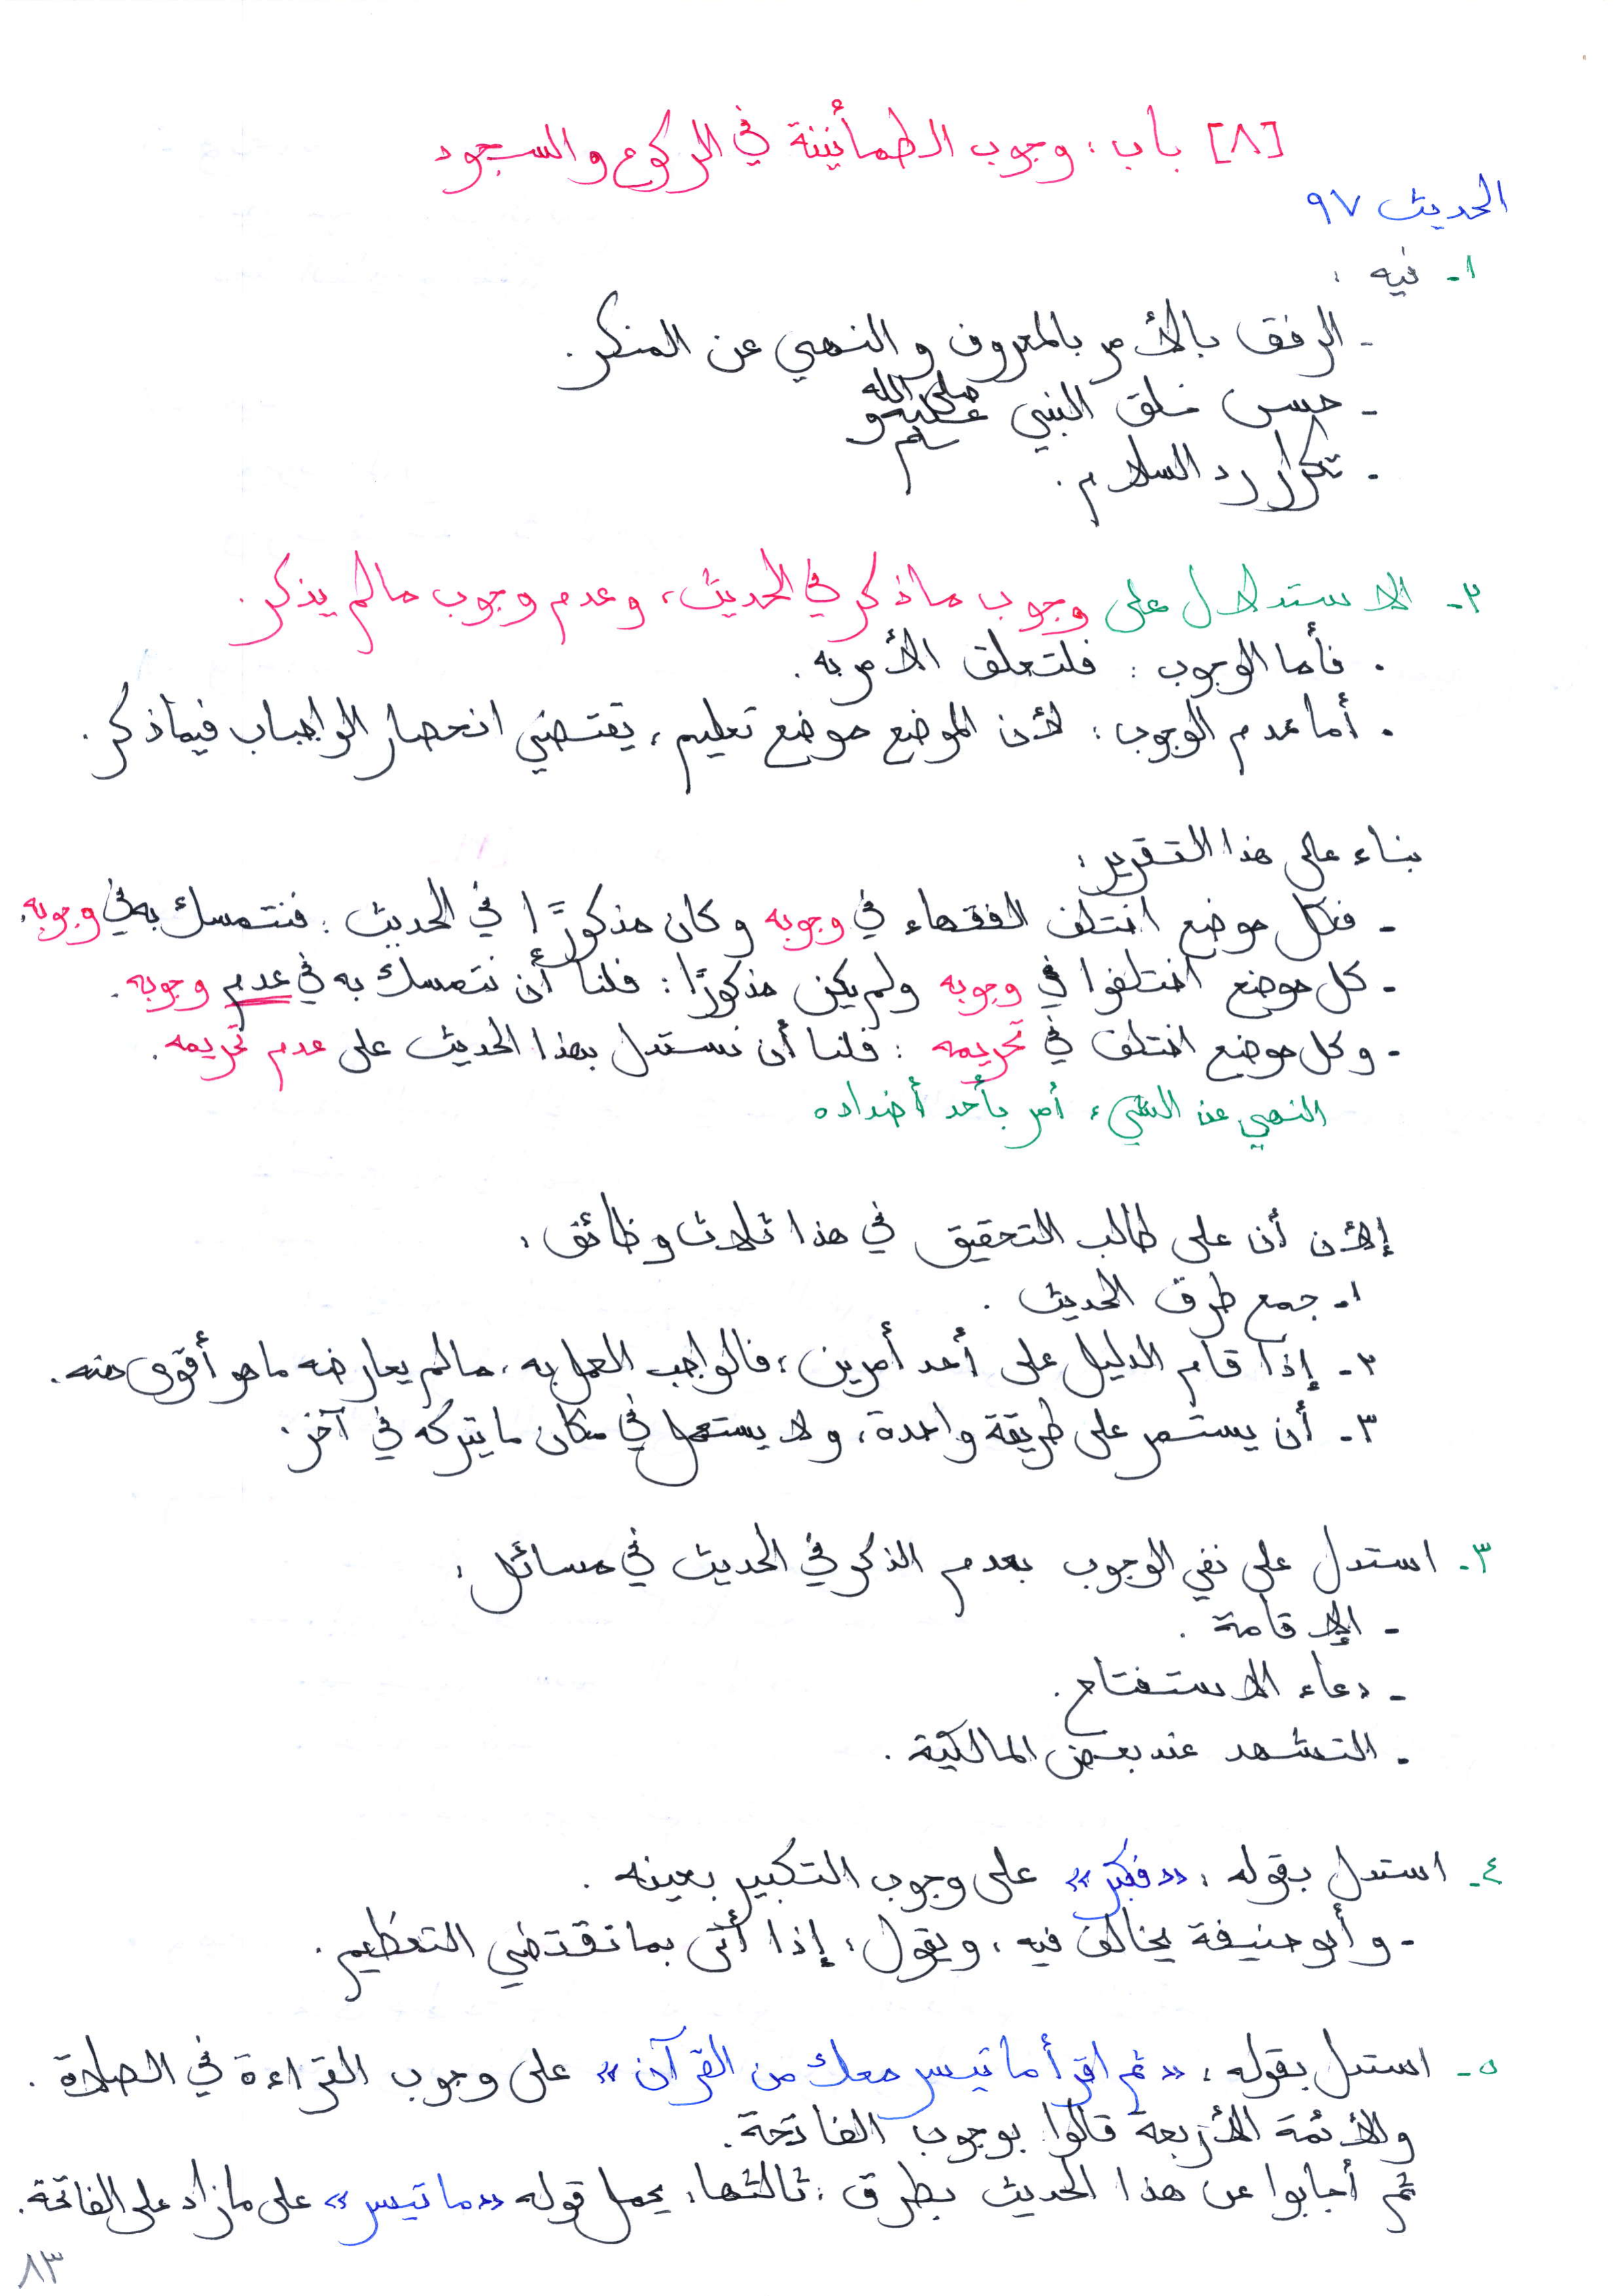 [٨] باب: وجوب الطمأنينة في الركوع والسجود
الحديث ٩٧
١- فيه:
- الرفق بالأمر بالمعروف والنهي عن المنكر.
- حسن خلق النبي صلى الله عليه وسلم
- تكرار رد السلام.
٢- الاستدلال على وجوب ما ذكر في الحديث، وعدم وجوب ما لم يذكر.
- فأما الوجوب: فلتعلق الأمر به.
- أما عدم الوجوب: لأن الموضع موضع تعليم، يقتضي انحصار الواجبات فيما ذكر.
بناء على هذا التقرير:
- فكل موضع اختلف الفقهاء في وجوبه وكان مذكورًا في الحديث: فنتمسك به في وجوبه.
- كل موضع اختلفوا في وجوبه ولم يكن مذكورًا: فلنا أن نتمسك به في عدم وجوبه.
- وكل موضع اختلف في تحريمه: فلنا أن نستدل بهذا الحديث على عدم تحريمه.
النهي عن الشيء، أمر بأحد أضداده
إلا أن أن على طالب التحقيق في هذا ثلاث وظائف:
١- جمع طرق الحديث.
٢- إذا قام الدليل على أحد أمرين، فالواجب العمل به، ما لم يعارضه ما هو أقوى منه.
٣- أن يستمر على طريقة واحدة، ولا يستعمل في مكان ما يتركه في آخر.
٣- استدل على نفي الوجوب بعدم الذكر في الحديث في مسائل:
- الإقامة.
- دعاء الاستفتاح.
- التشهد عند بعض المالكية.
٤- استدل بقوله: «فكبّر» على وجوب التكبير بعينه.
- وأبو حنيفة يخالف فيه، ويقول: إذا أتى بما تقتضي التعظيم.
٥- استدل بقوله: «ثم اقرأ ما تيسر معك من القرآن» على وجوب القراءة في الصلاة.
والأئمة الأربعة قالوا بوجوب الفاتحة.
ثم أجابوا عن هذا الحديث بطرق: ثالثها: يحمل قوله «ما تيسر» على ما زاد على الفاتحة.
٨٣